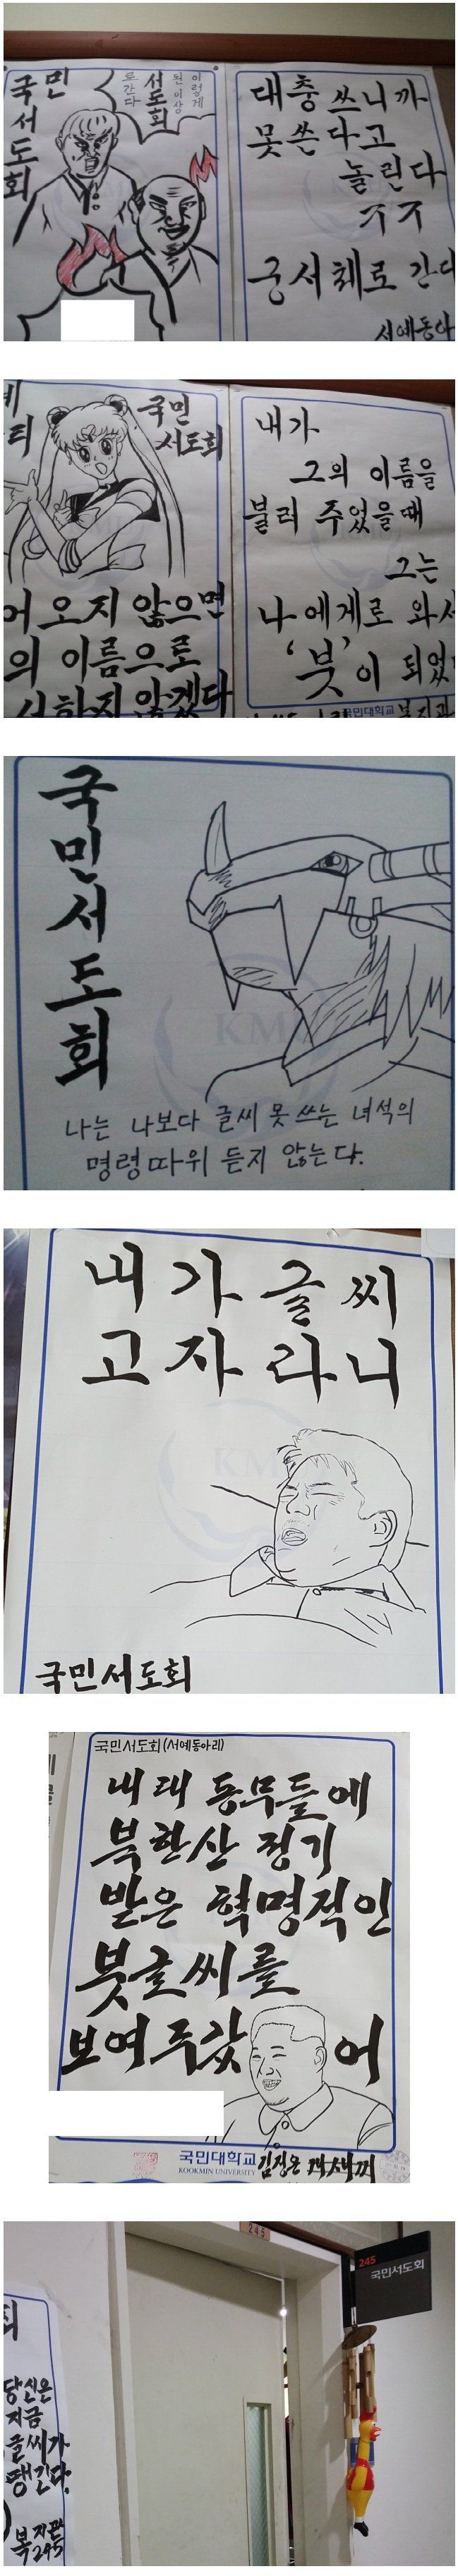 국민
서도회
이렇게
된 이상
서도회
로 간다
대충 쓰니까
못 쓴다고
놀린다
ㅜㅜ
궁서체로 간다
서예동아
국민
서도회
어오지 않으면
의 이름으로
서하지 않겠다
내가
그의 이름을
불러 주었을 때
그는
나에게로 와서
'붓'이 되었
국민대학교
국민서도회
KM
나는 나보다 글씨 못 쓰는 녀석의
명령따위 듣지 않는다.
내가 글씨
고자라니
KM
국민서도회
국민서도회(서예동아리)
내래 동무들에
북한산 정기
받은 혁명적인
붓글씨를
보여주갔어
국민대학교
KOOKMIN UNIVERSITY
김정은 개새끼
245
245
국민서도회
당신은
지금
글씨가
땡긴다.
복지관
245